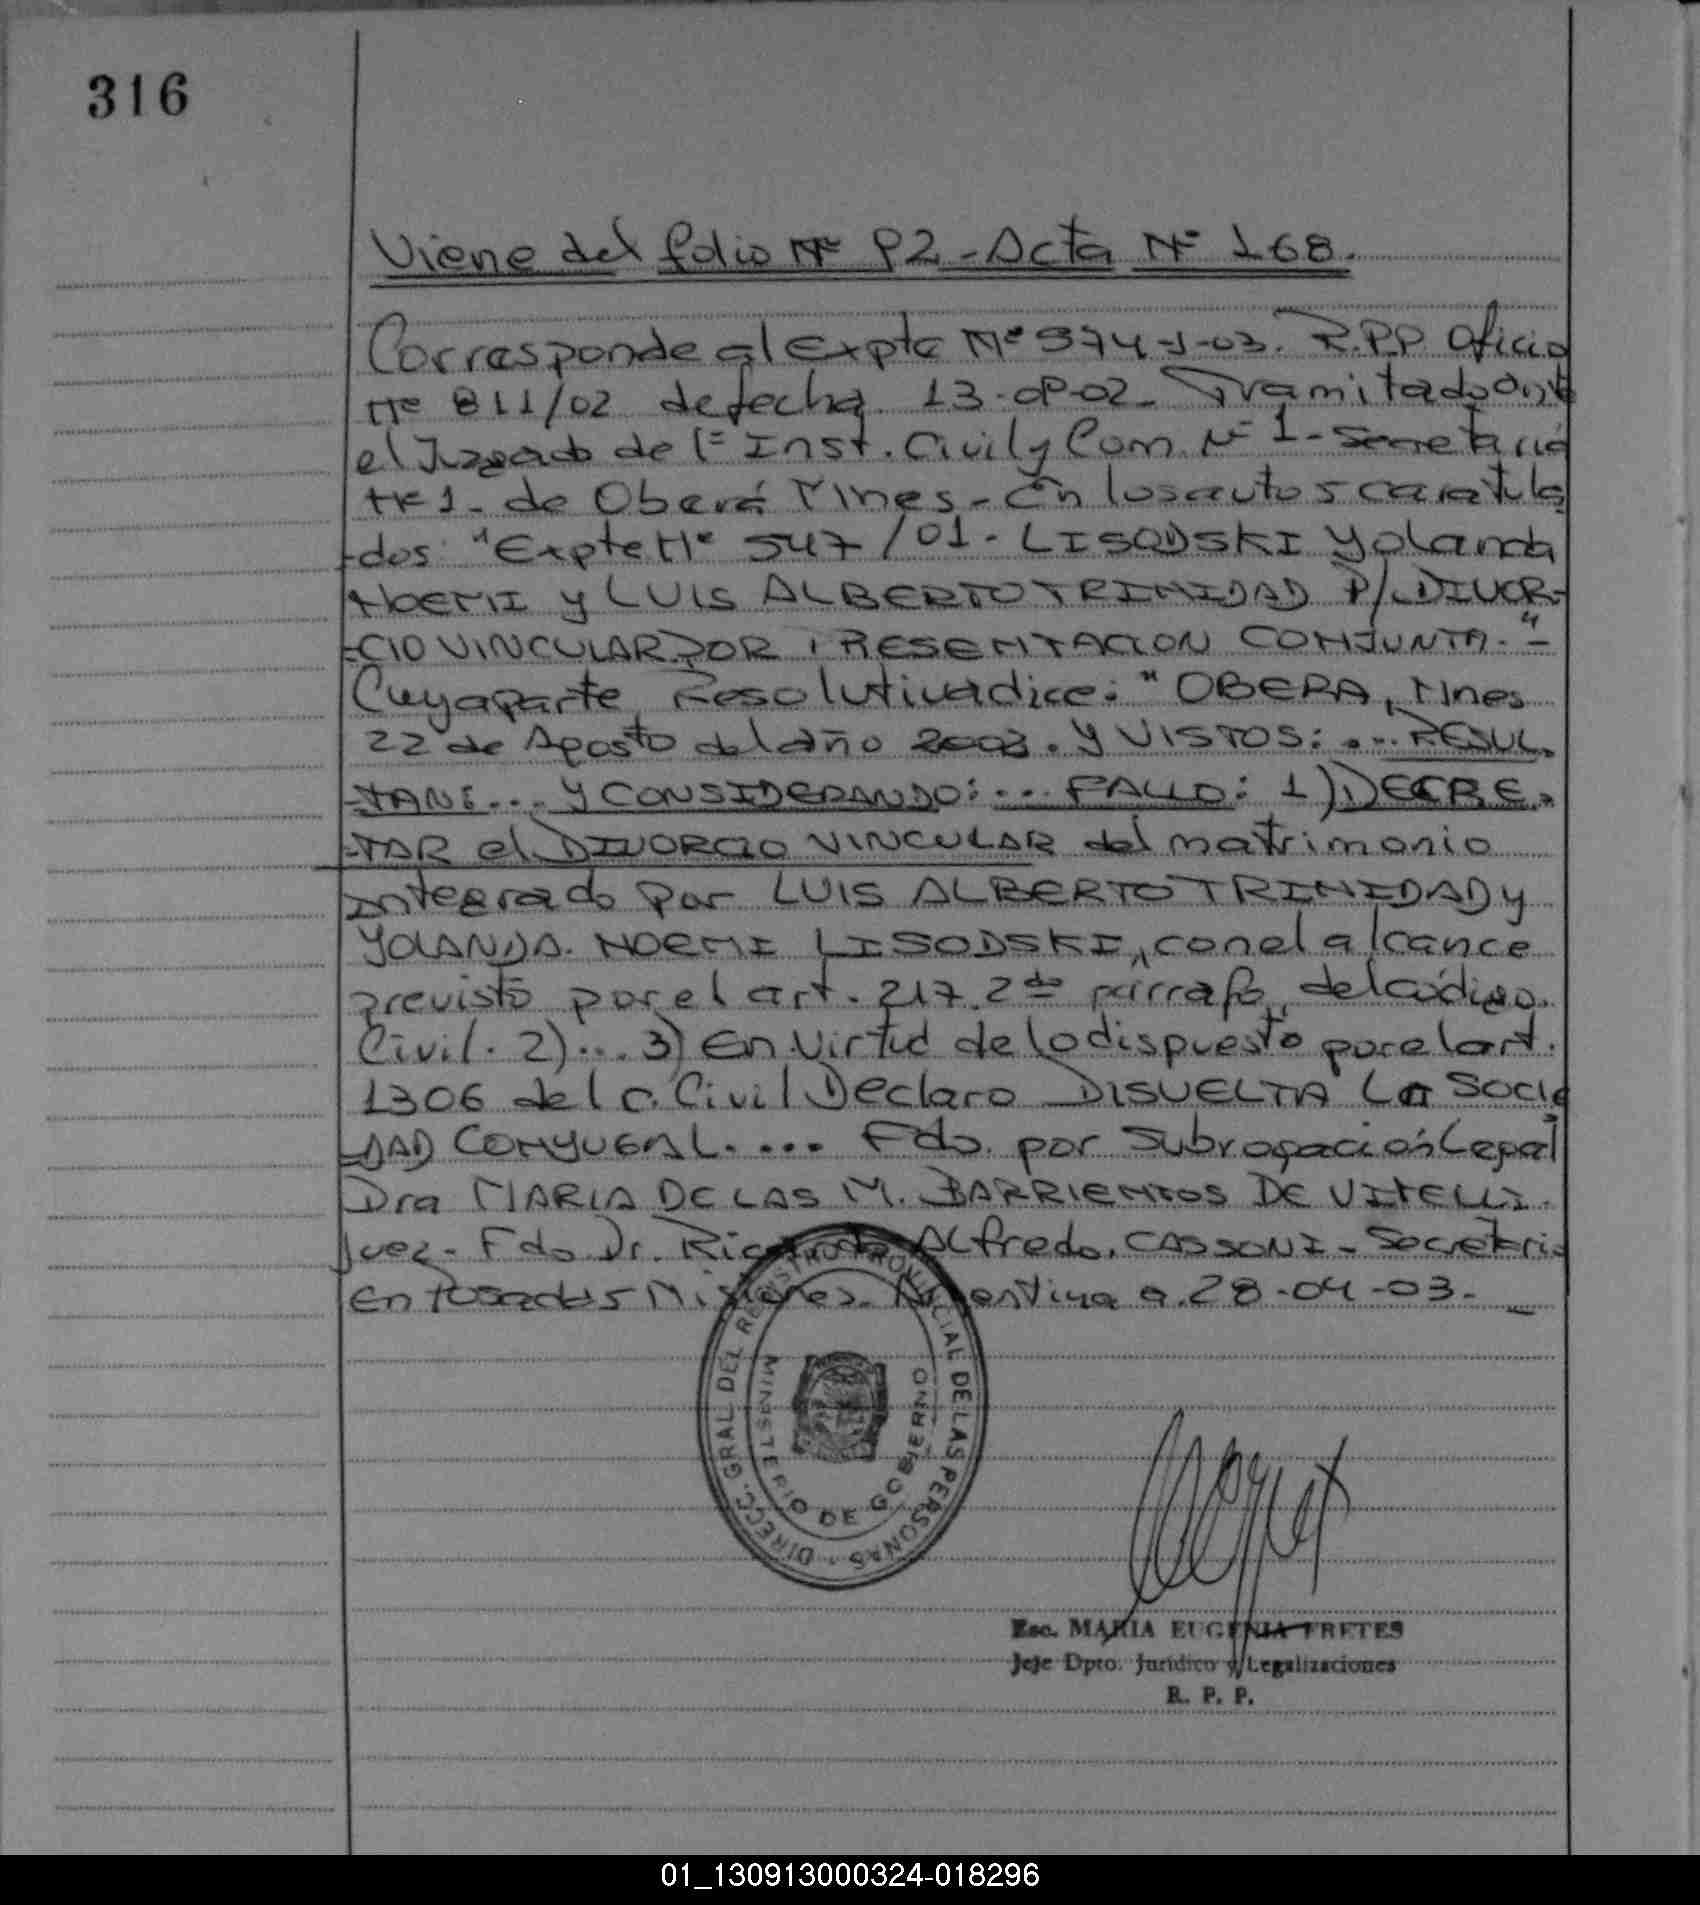 316
Viene del folio Nº 92 - Acta Nº 168.
Corresponde al Expte Nº 974-J-03. R.P.P. Oficio
Nº 811/02 de fecha 13-09-02. Tramitado Ante
el Juzgado de 1ª Inst. Civil y Com. Nº 1 - Secretaria
Nº 1. de Oberá Mnes - En los autos caratula
-dos "Expte Nº 547/01. LISODSKI Yolanda
NOEMI y LUIS ALBERTO TRINIDAD P/ DIVOR-
-CIO VINCULAR POR PRESENTACION CONJUNTA."-
Cuya parte Resolutiva dice: "OBERA, Mnes
22 de Agosto del año 2003. Y VISTOS: ... RESUL.
-TANE... Y CONSIDERANDO: ... FALLO: 1) DECRE.
-TAR el DIVORCIO VINCULAR del matrimonio
integrado por LUIS ALBERTO TRINIDAD y
YOLANDA NOEMI LISODSKI, con el alcance
previsto por el art. 217. 2do párrafo, del código.
Civil. 2)... 3) En Virtud de lo dispuesto por el art.
1306 del C. Civil Declaro DISUELTA La Socie
-DAD CONYUGAL.... Fdo. por Subrogación Legal
Dra MARIA DE LAS M. BARRIENTOS DE VITELLI.
Juez - Fdo Dr. Ricardo ALfredo. CASSONI - Secretario
En Posadas Misiones. Argentina a. 28-04-03. -
DIRECC. GRAL. DEL REGISTRO PROVINCIAL DE LAS PERSONAS
MINISTERIO DE GOBIERNO
Esc. MARIA EUGENIA FRETES
Jefe Dpto. Jurídico y Legalizaciones
R. P. P.
01_130913000324-018296